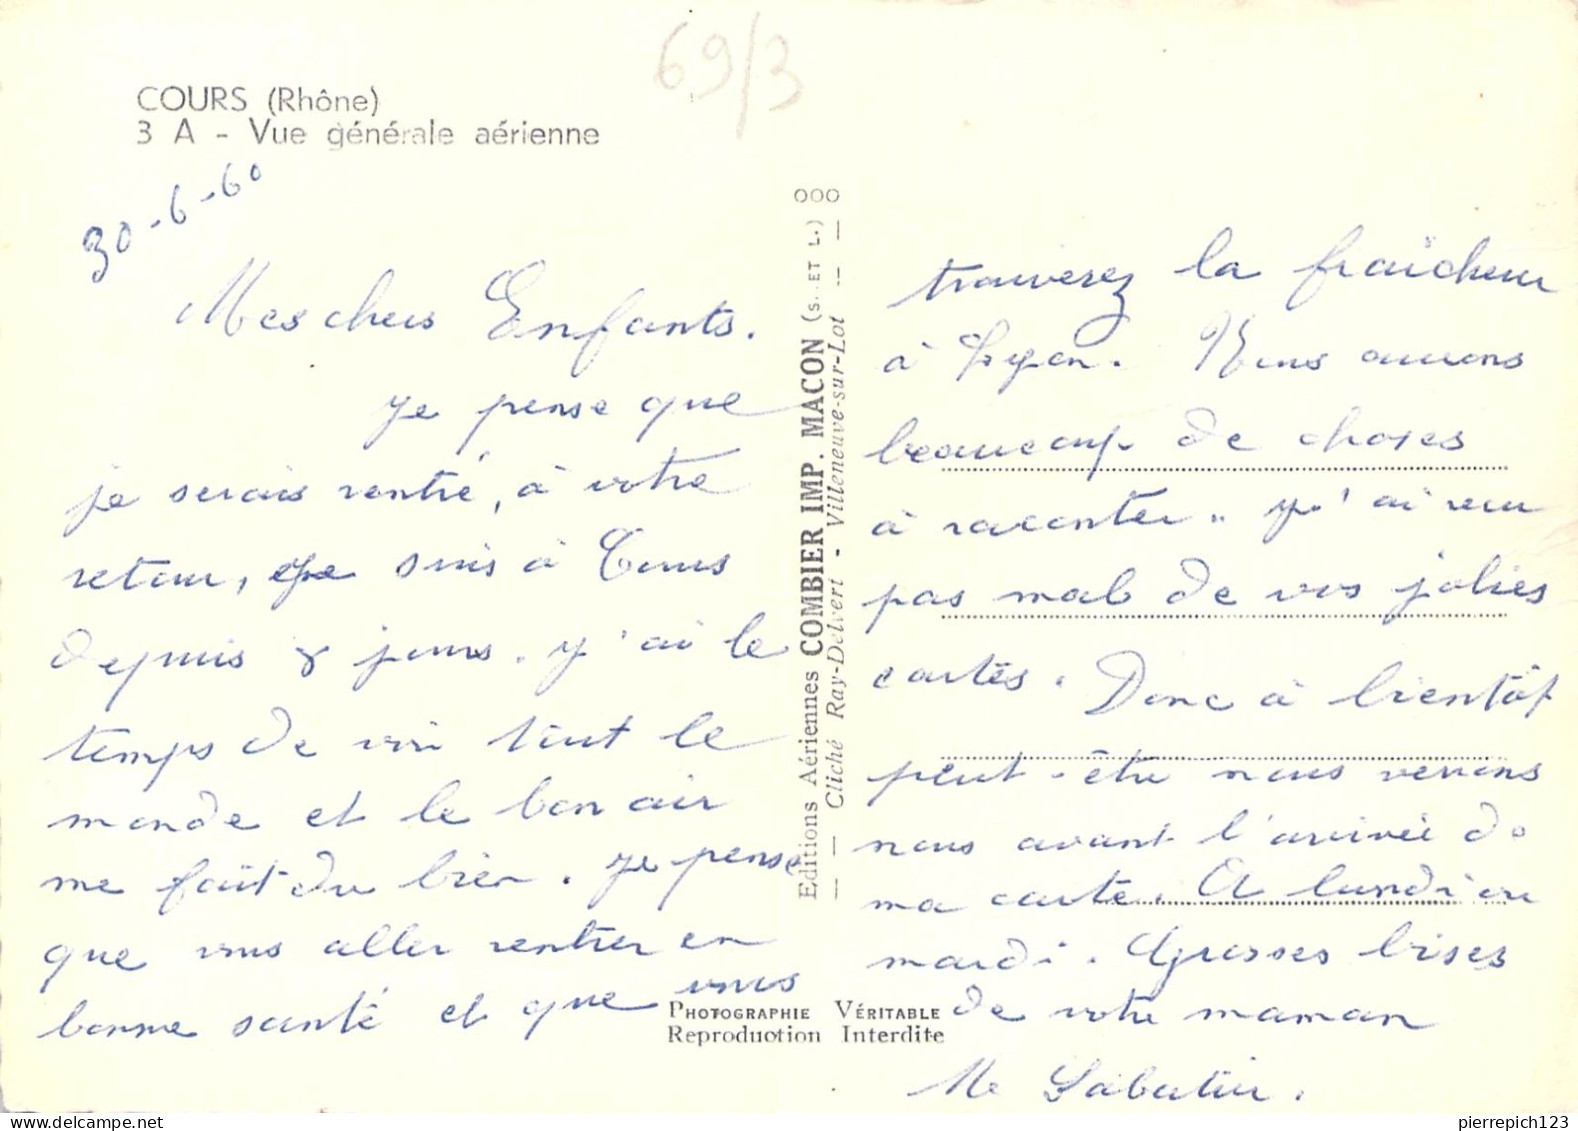 69/3
COURS (Rhône)
3 A - Vue générale aérienne
30-6-60
Mes chers Enfants.
je pense que
je serais rentré, à votre
retour, je suis à Cours
depuis 8 jours. j'ai le
temps de voir tout le
monde et le bon air
me fait du bien. je pense
que vous aller rentrer en
bonne santé et que vous
Editions Aériennes COMBIER IMP. MACON (S. ET L.) 000
— — Cliché Ray-Delvert - Villeneuve-sur-Lot — —
trouverez la fraîcheur
à Lyon. Nous aurons
beaucoup de choses
à raconter.. j'ai reçu
pas mal de vos jolies
cartes. Donc à bientôt
peut-être nous verrons
nous avant l'arrivée de
ma carte. A lundi ou
mardi. Grosses bises
de votre maman
Me
PHOTOGRAPHIE VÉRITABLE
Reproduction Interdite
pierrepich123